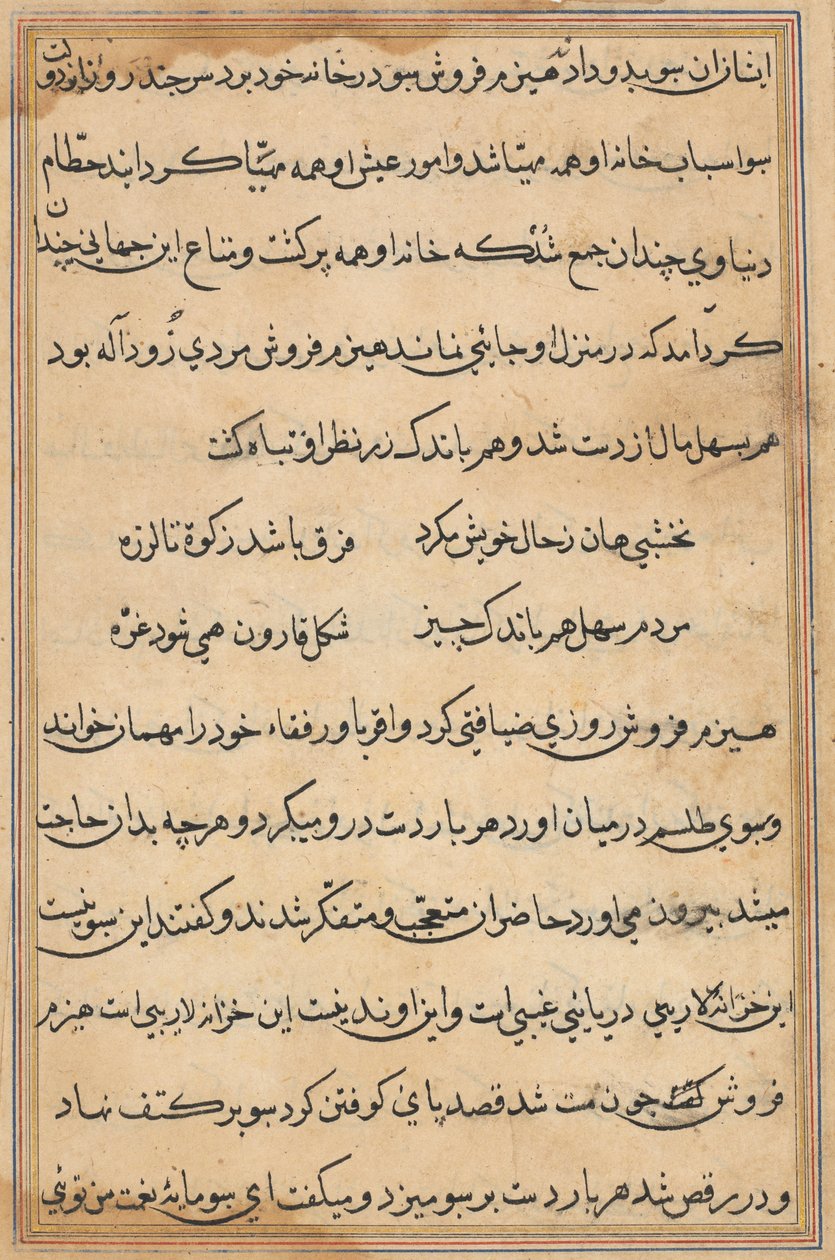 ایشان ان سبو بدو دادند هیزم فروش سبو در خانه خود برد سر چند روز از دولت
سبو اسباب خانه او همه مهیّا شد و امور عیش او همه مهیّا کردانید حطّام
دنیاوي چندان جمع شُد که خانه او همه پر کشت و متاع این جهانی چندان
کرد آمد که در منزل او جائي نماند هیزم فروش مردي زُود آله بود
هم بسهل مال از دست شد و هم باندک زر نظر او تباه کشت
نخشبي هان ز حال خویش مکرد فرق باشد زکوة تا لرزه
مردم سهل هم باندک چیز شکل قارون همی شود غرّه
هیزم فروش روزي ضیافتي کرد و اقربا و رفقاء خود را مهمان خواند
و سبوي طلسم در میان اورد هر بار دست درو میکرد و هرچه بدان حاجت
میشد بیرون می اورد حاضران متعجّب و متفکّر شدند و کفتند این سبو نیست
این خزانهٔ لاریبي دریائي غیبي است و این اوند نیست این خزانه لاریبي است هیزم
فروش کفت چون مست شد قصد پائ کوفتن کرد سبو بر کتف نهاد
و در رقص شد هر بار دست بر سبو میزد و میکفت اي سبو مایهٔ نعمت من توئي